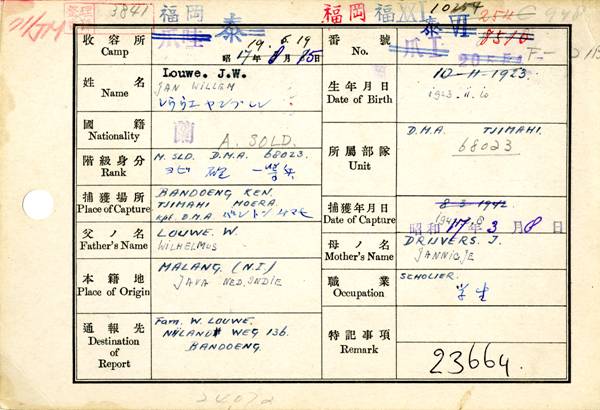 3841 福岡 福岡 福 XVI 10254
爪哇 泰 爪 泰 VI 8510
收容所 Camp 19. 6. 19
昭 17年 8月 15日
番號 No.
姓名 Name Louwe. J.W.
JAN WILLEM
生年月日 Date of Birth 10-11-1923.
1923. 11. 10
國籍 Nationality 蘭
A. SOLD.
所屬部隊 Unit D.M.A. TJIMAHI.
68023
階級身分 Rank M. SLD. D.M.A. 68023.
捕獲場所 Place of Capture BANDOENG KEN.
TJIMAHI MOERA.
kpt. D.M.A.
捕獲年月日 Date of Capture 8-3-1942
昭和 17年 3月 8日
父ノ名 Father's Name LOUWE. W
WILHELMUS
母ノ名 Mother's Name DRIJVERS. J.
JANNIGJE
本籍地 Place of Origin MALANG. (N.I.)
JAVA NED. INDIE
職業 Occupation SCHOLIER.
学生
通報先 Destination of Report Fam. W. LOUWE.
NYLAND WEG 136.
BANDOENG.
特記事項 Remark
23664.
24072